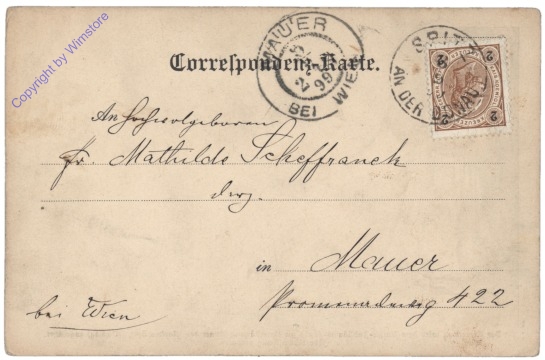 Copyright by Wimstore
MAUER
BEI WIEN
99
SPITZ
AN DER DONAU
2 2
2 2
Correspondenz-Karte.
An Hochwolgeboren
Fr. Mathilde Scheffranek
derz.
in Mauer
Promenadweg 422
bei Wien